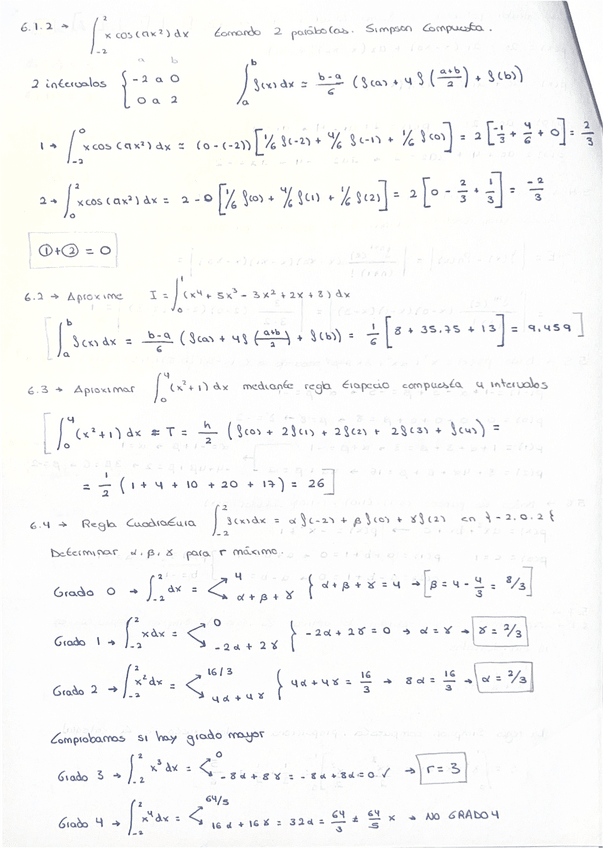 6.1.2 → ∫₋₂² x cos(πx²) dx tomando 2 parábolas. Simpson Compuesta.
a b
2 intervalos { -2 a 0
0 a 2
∫ₐᵇ f(x) dx = (b-a)/6 (f(a) + 4f((a+b)/2) + f(b))
1 → ∫₋₂⁰ x cos(πx²) dx = (0-(-2)) [1/6 f(-2) + 4/6 f(-1) + 1/6 f(0)] = 2 [-1/3 + 4/6 + 0] = 2/3
2 → ∫₀² x cos(πx²) dx = 2-0 [1/6 f(0) + 4/6 f(1) + 1/6 f(2)] = 2 [0 - 2/3 + 1/3] = -2/3
①+② = 0
6.2 → Aproxime I = ∫₀¹ (x⁴ + 5x³ - 3x² + 2x + 8) dx
[∫ₐᵇ f(x) dx = (b-a)/6 (f(a) + 4f((a+b)/2) + f(b)) = 1/6 [8 + 35.75 + 13] = 9.459]
6.3 → Aproximar ∫₀⁴ (x²+1) dx mediante regla trapecio compuesta 4 intervalos
[∫₀⁴ (x²+1) dx ≈ T = h/2 (f(0) + 2f(1) + 2f(2) + 2f(3) + f(4)) =
= 1/2 (1 + 4 + 10 + 20 + 17) = 26]
6.4 → Regla Cuadratura ∫₋₂² f(x)dx = αf(-2) + βf(0) + γf(2) en {-2,0,2}
Determinar α, β, γ para r máximo.
Grado 0 → ∫₋₂² dx = < 4
α + β + γ } α + β + γ = 4 → [β = 4 - 4/3 = 8/3]
Grado 1 → ∫₋₂² xdx = < 0
-2α + 2γ } -2α + 2γ = 0 → α = γ → γ = 2/3
Grado 2 → ∫₋₂² x²dx = < 16/3
4α + 4γ { 4α + 4γ = 16/3 → 8α = 16/3 → α = 2/3
Comprobamos si hay grado mayor
Grado 3 → ∫₋₂² x³ dx = < 0
-8α + 8γ = -8α + 8α = 0 ✓ → r = 3
Grado 4 → ∫₋₂² x⁴dx = < 64/5
16α + 16γ = 32α = 64/3 ≠ 64/5 × → NO GRADO 4